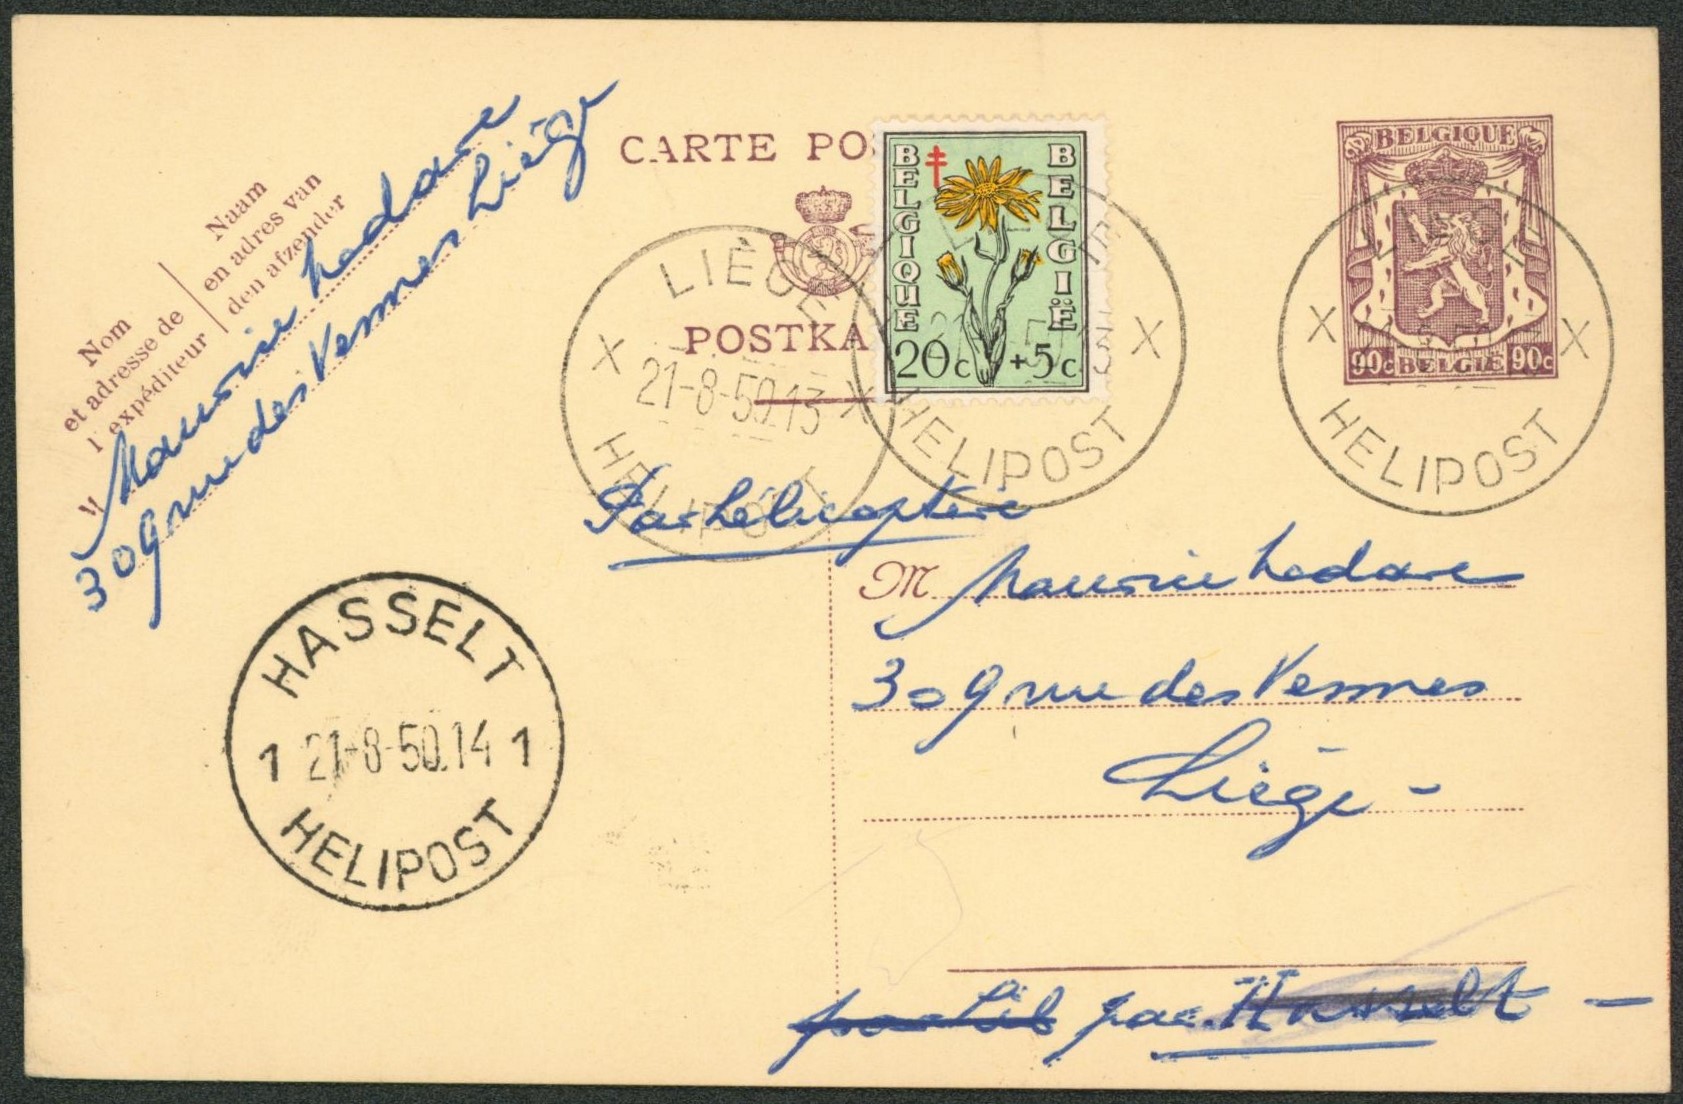 CARTE PO
POSTKA
Naam
en adres van
den afzender
Nom
et adresse de
l'expéditeur
Maurice Ledare
309 rue des Vennes Liége
BELGIQUE
BELGIË
20c +5c
BELGIQUE
90c BELGIË 90c
LIÈGE
X 21-8-50.13 X
HELIPOST
X
HELIPOST
X X
HELIPOST
Par hélicoptère
M Maurice Ledare
309 rue des Vennes
Liége -
HASSELT
1 21-8-50.14 1
HELIPOST
par Hasselt -